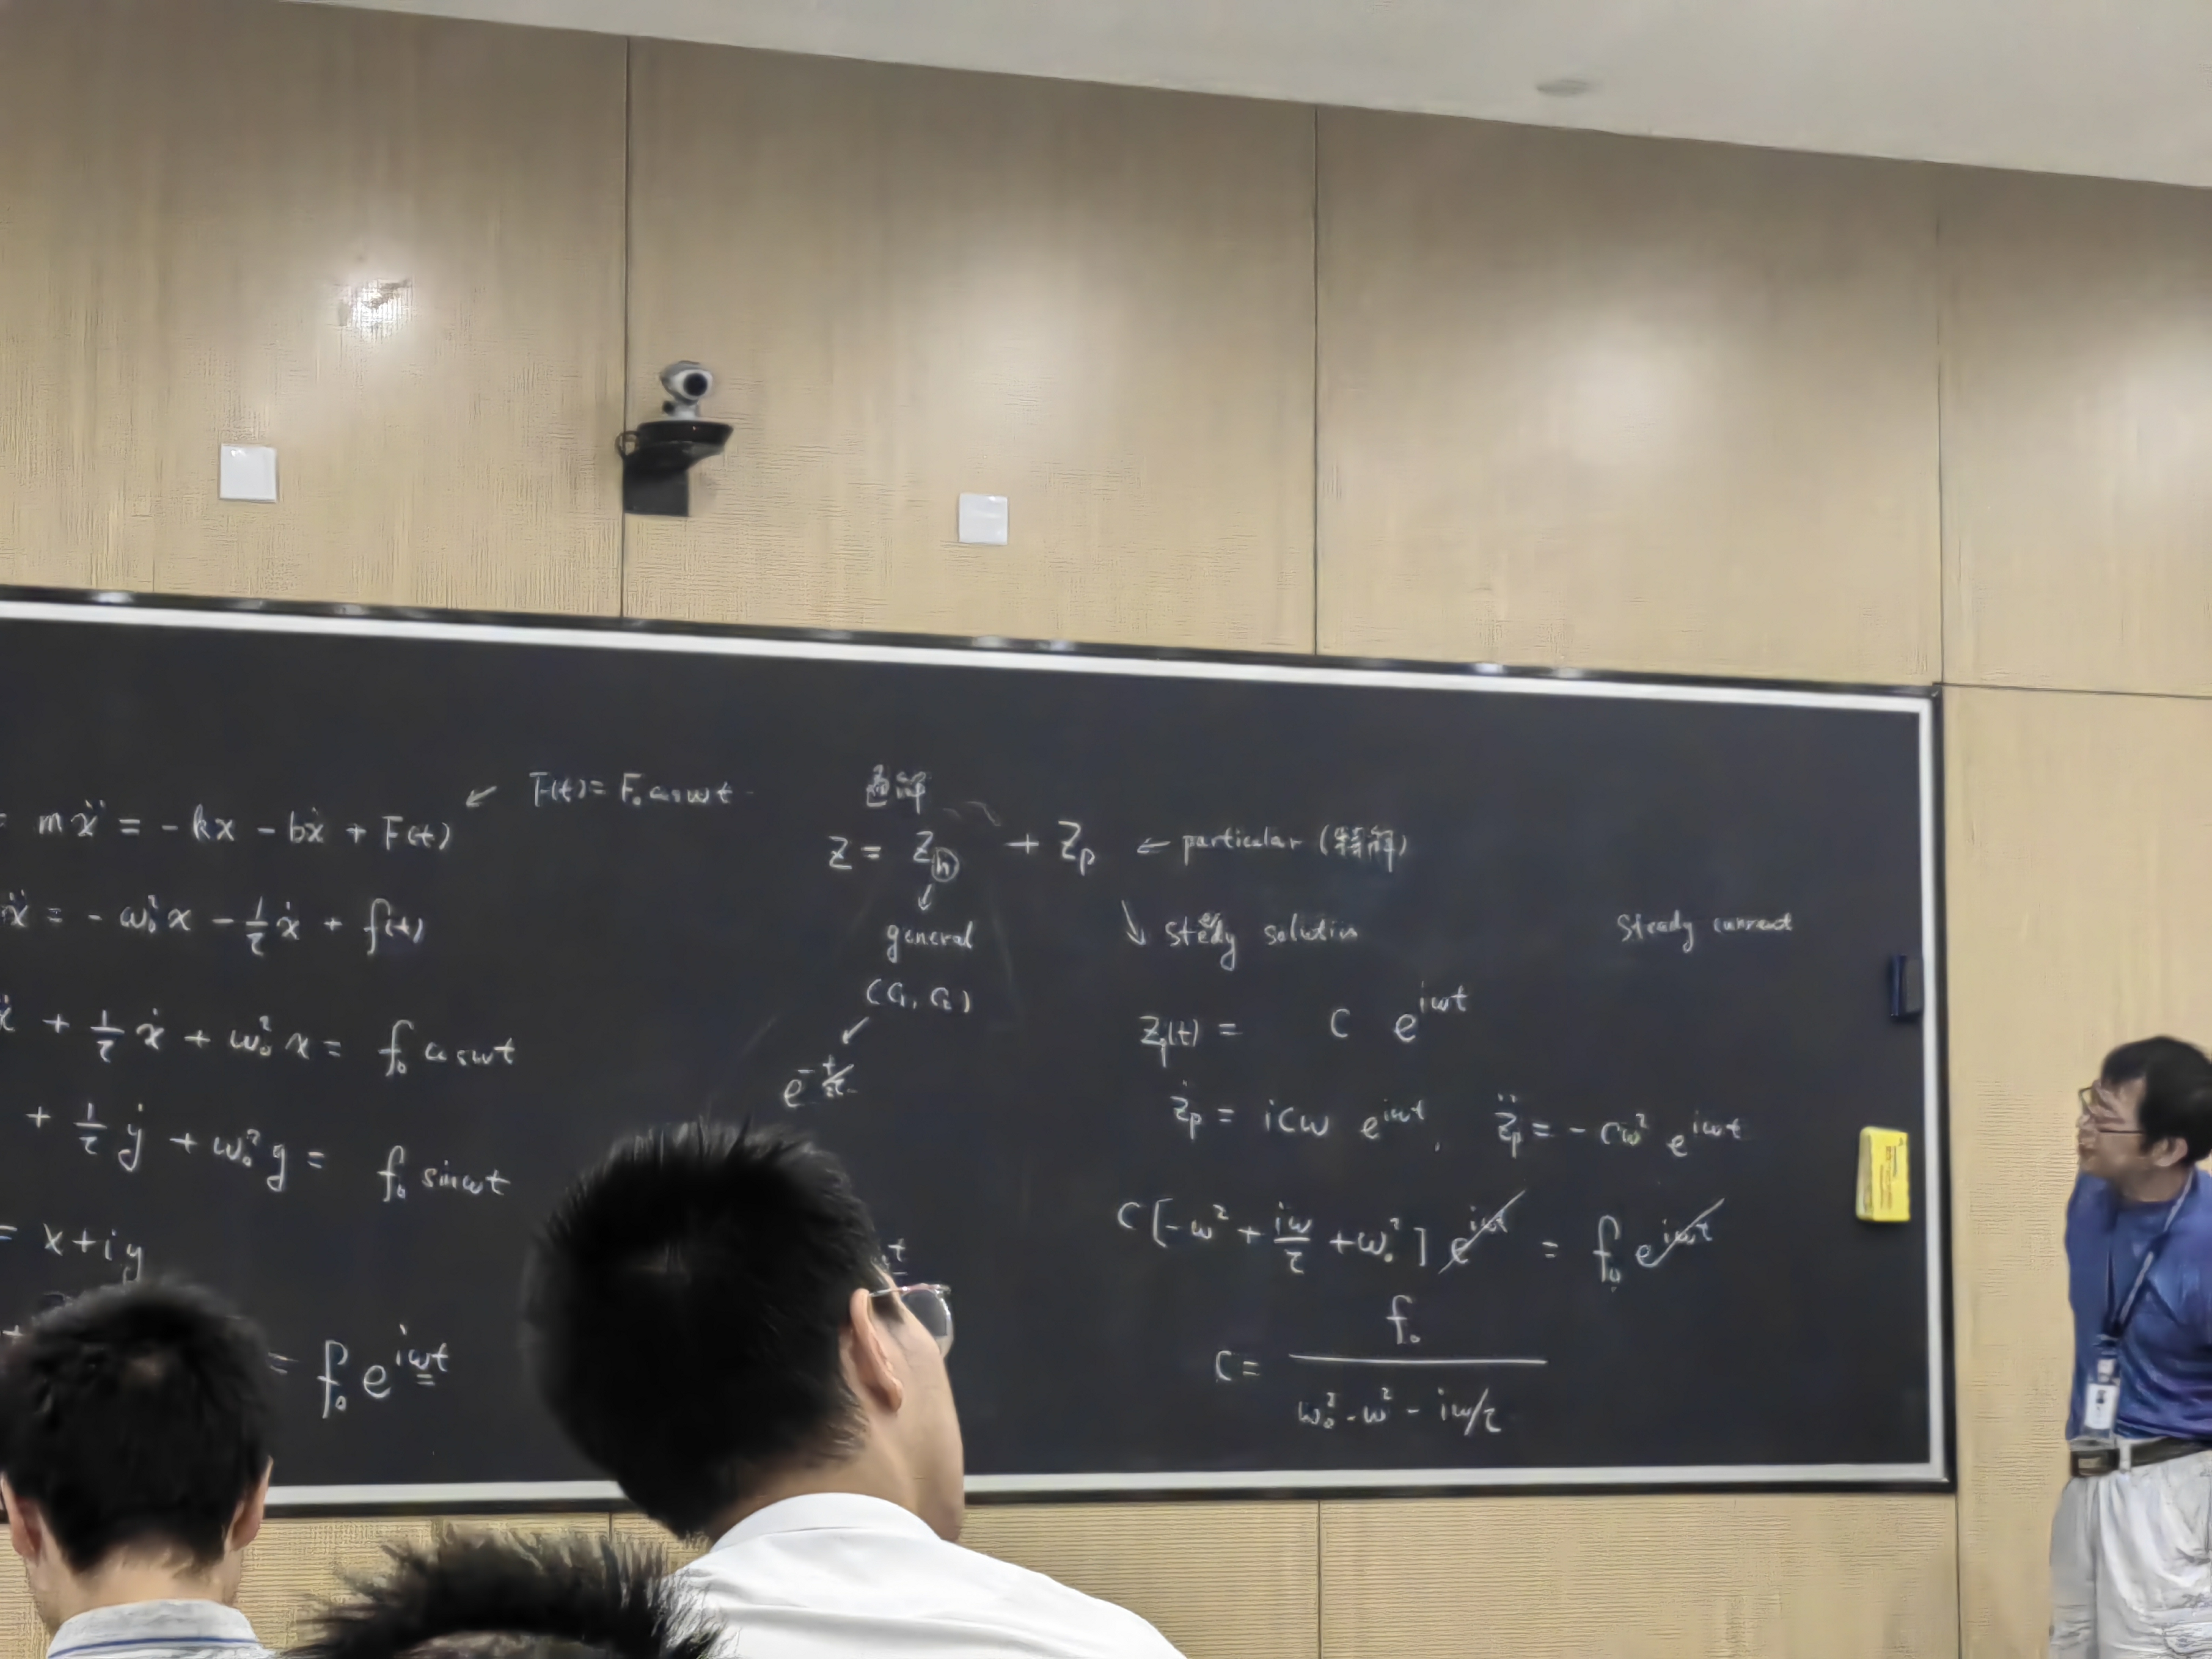 = mẍ = - kx - bẋ + F(t) ↙ F(t) = F₀ cos ωt
ẍ = - ω₀² x - 1/τ ẋ + f(t)
ẍ + 1/τ ẋ + ω₀² x = f₀ cos ωt
+ 1/τ ẏ + ω₀² y = f₀ sin ωt
= x + iy
= f₀ e^{iωt}
通解
Z = Z_h + Z_p ← particular (特解)
↓
general
(C₁, C₂)
↙
e^{-t/2τ}
↘ steady solution
Steady current
Z_p(t) = C e^{iωt}
Ż_p = iCω e^{iωt}, Z̈_p = - Cω² e^{iωt}
C [ -ω² + iω/τ + ω₀² ] e^{iωt} = f₀ e^{iωt}
C = f₀ / (ω₀² - ω² - iω/τ)